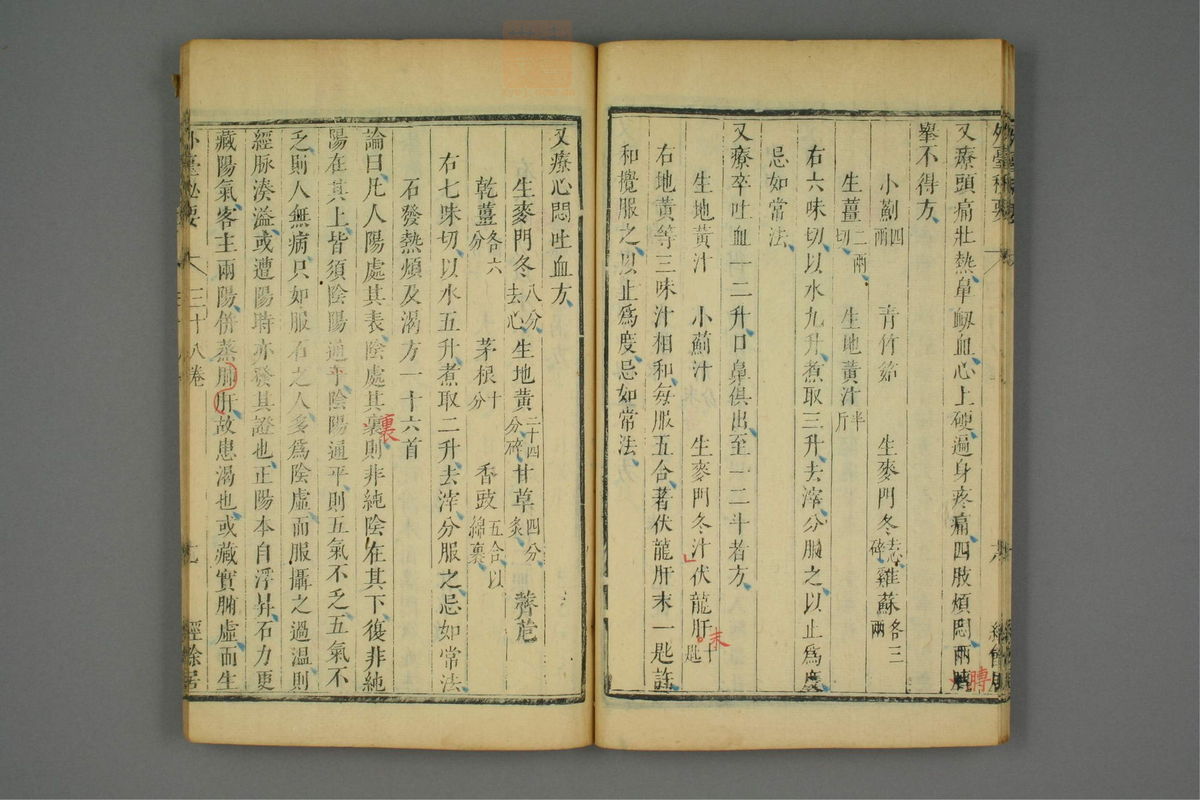 又療頭痛壯熱鼻衂血心上硬遍身疼痛四肢煩悶兩䏝
膞
舉不得方
小薊四兩　青竹筎　生麥門冬去心碎　雞蘇各三兩
生薑二兩切　生地黃汁半斤
右六味切以水九升煮取三升去滓分服之以止爲度
忌如常法
又療卒吐血一二升口鼻俱出至一二斗者方
生地黃汁　小薊汁　生麥門冬汁　伏龍肝十匙
末
右地黃等三味汁相和每服五合著伏龍肝末一匙許
和攪服之以止爲度忌如常法
又療心悶吐血方
生麥門冬八分去心　生地黃二十四分碎　甘草四分炙　薺苨
乾薑各六分　茅根十分　香豉五合以綿裹
右七味切以水五升煮取二升去滓分服之忌如常法
石發熱煩及渴方一十六首
論曰凡人陽處其表陰處其裏則非純陰在其下復非純
裏
陽在其上皆須陰陽通乎陰陽通平則五氣不乏五氣不
乏則人無病只如服石之人多爲陰虛而服攝之過溫則
經脉湊溢或遭陽時亦發其證也正陽本自浮昇石力更
藏陽氣客主兩陽併蒸肺肝故患渴也或藏實腑虛而生
外臺秘要　三十八卷　七　經餘居